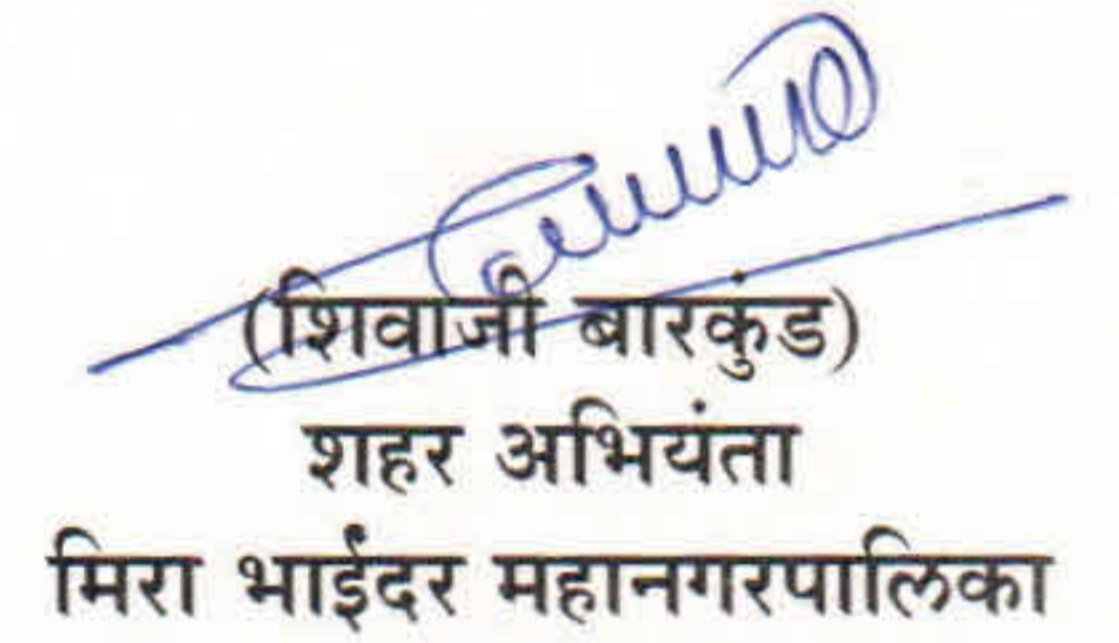 (शिवाजी बारकुंड)
शहर अभियंता
मिरा भाईंदर महानगरपालिका